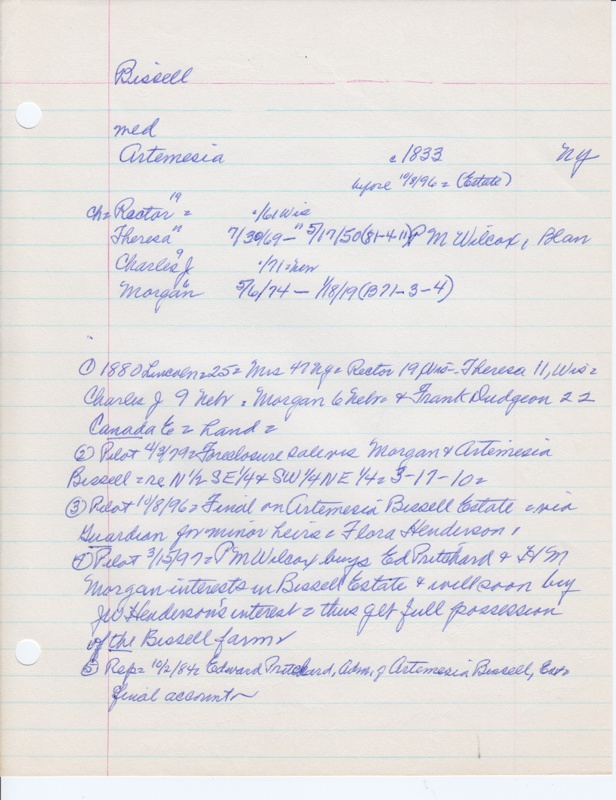 Bissell
med
Artemesia c 1833 NY
before 10/8/96 = (Estate)
ch = Rector 19 = c/61 Wis
Theresa 11 7/30/69 - 5/17/50 (B1-4-11) P M Wilcox, Blair
Charles J 9 c/71 = Nebr
Morgan 6 5/6/74 - 1/18/19 (B71-3-4)
① 1880 Lincoln = 25 = Mrs 47 Ny = Rector 19, Wis - Theresa 11, Wis =
Charles J 9 Nebr = Morgan 6 Nebr & Frank Dudgeon 22
Canada E = hand =
② Pilot 4/3/79 = Foreclosure sale vis Morgan & Artemisia
Bissell = re N 1/2 SE 1/4 & SW 1/4 NE 1/4 = 3-17-10 =
③ Pilot 10/8/96 = Final on Artemesia Bissell Estate = via
Guardian for minor heirs = Flora Henderson,
④ Pilot 3/15/97 = P M Wilcox buys Ed Pritchard & H M
Morgan interests in Bissell Estate & will soon buy
JW Henderson's interest = thus get full possession
of the Bissell farm
⑤ Rep = 10/2/84 = Edward Pritchard, Adm. of Artemesia Bissell, Est =
final account